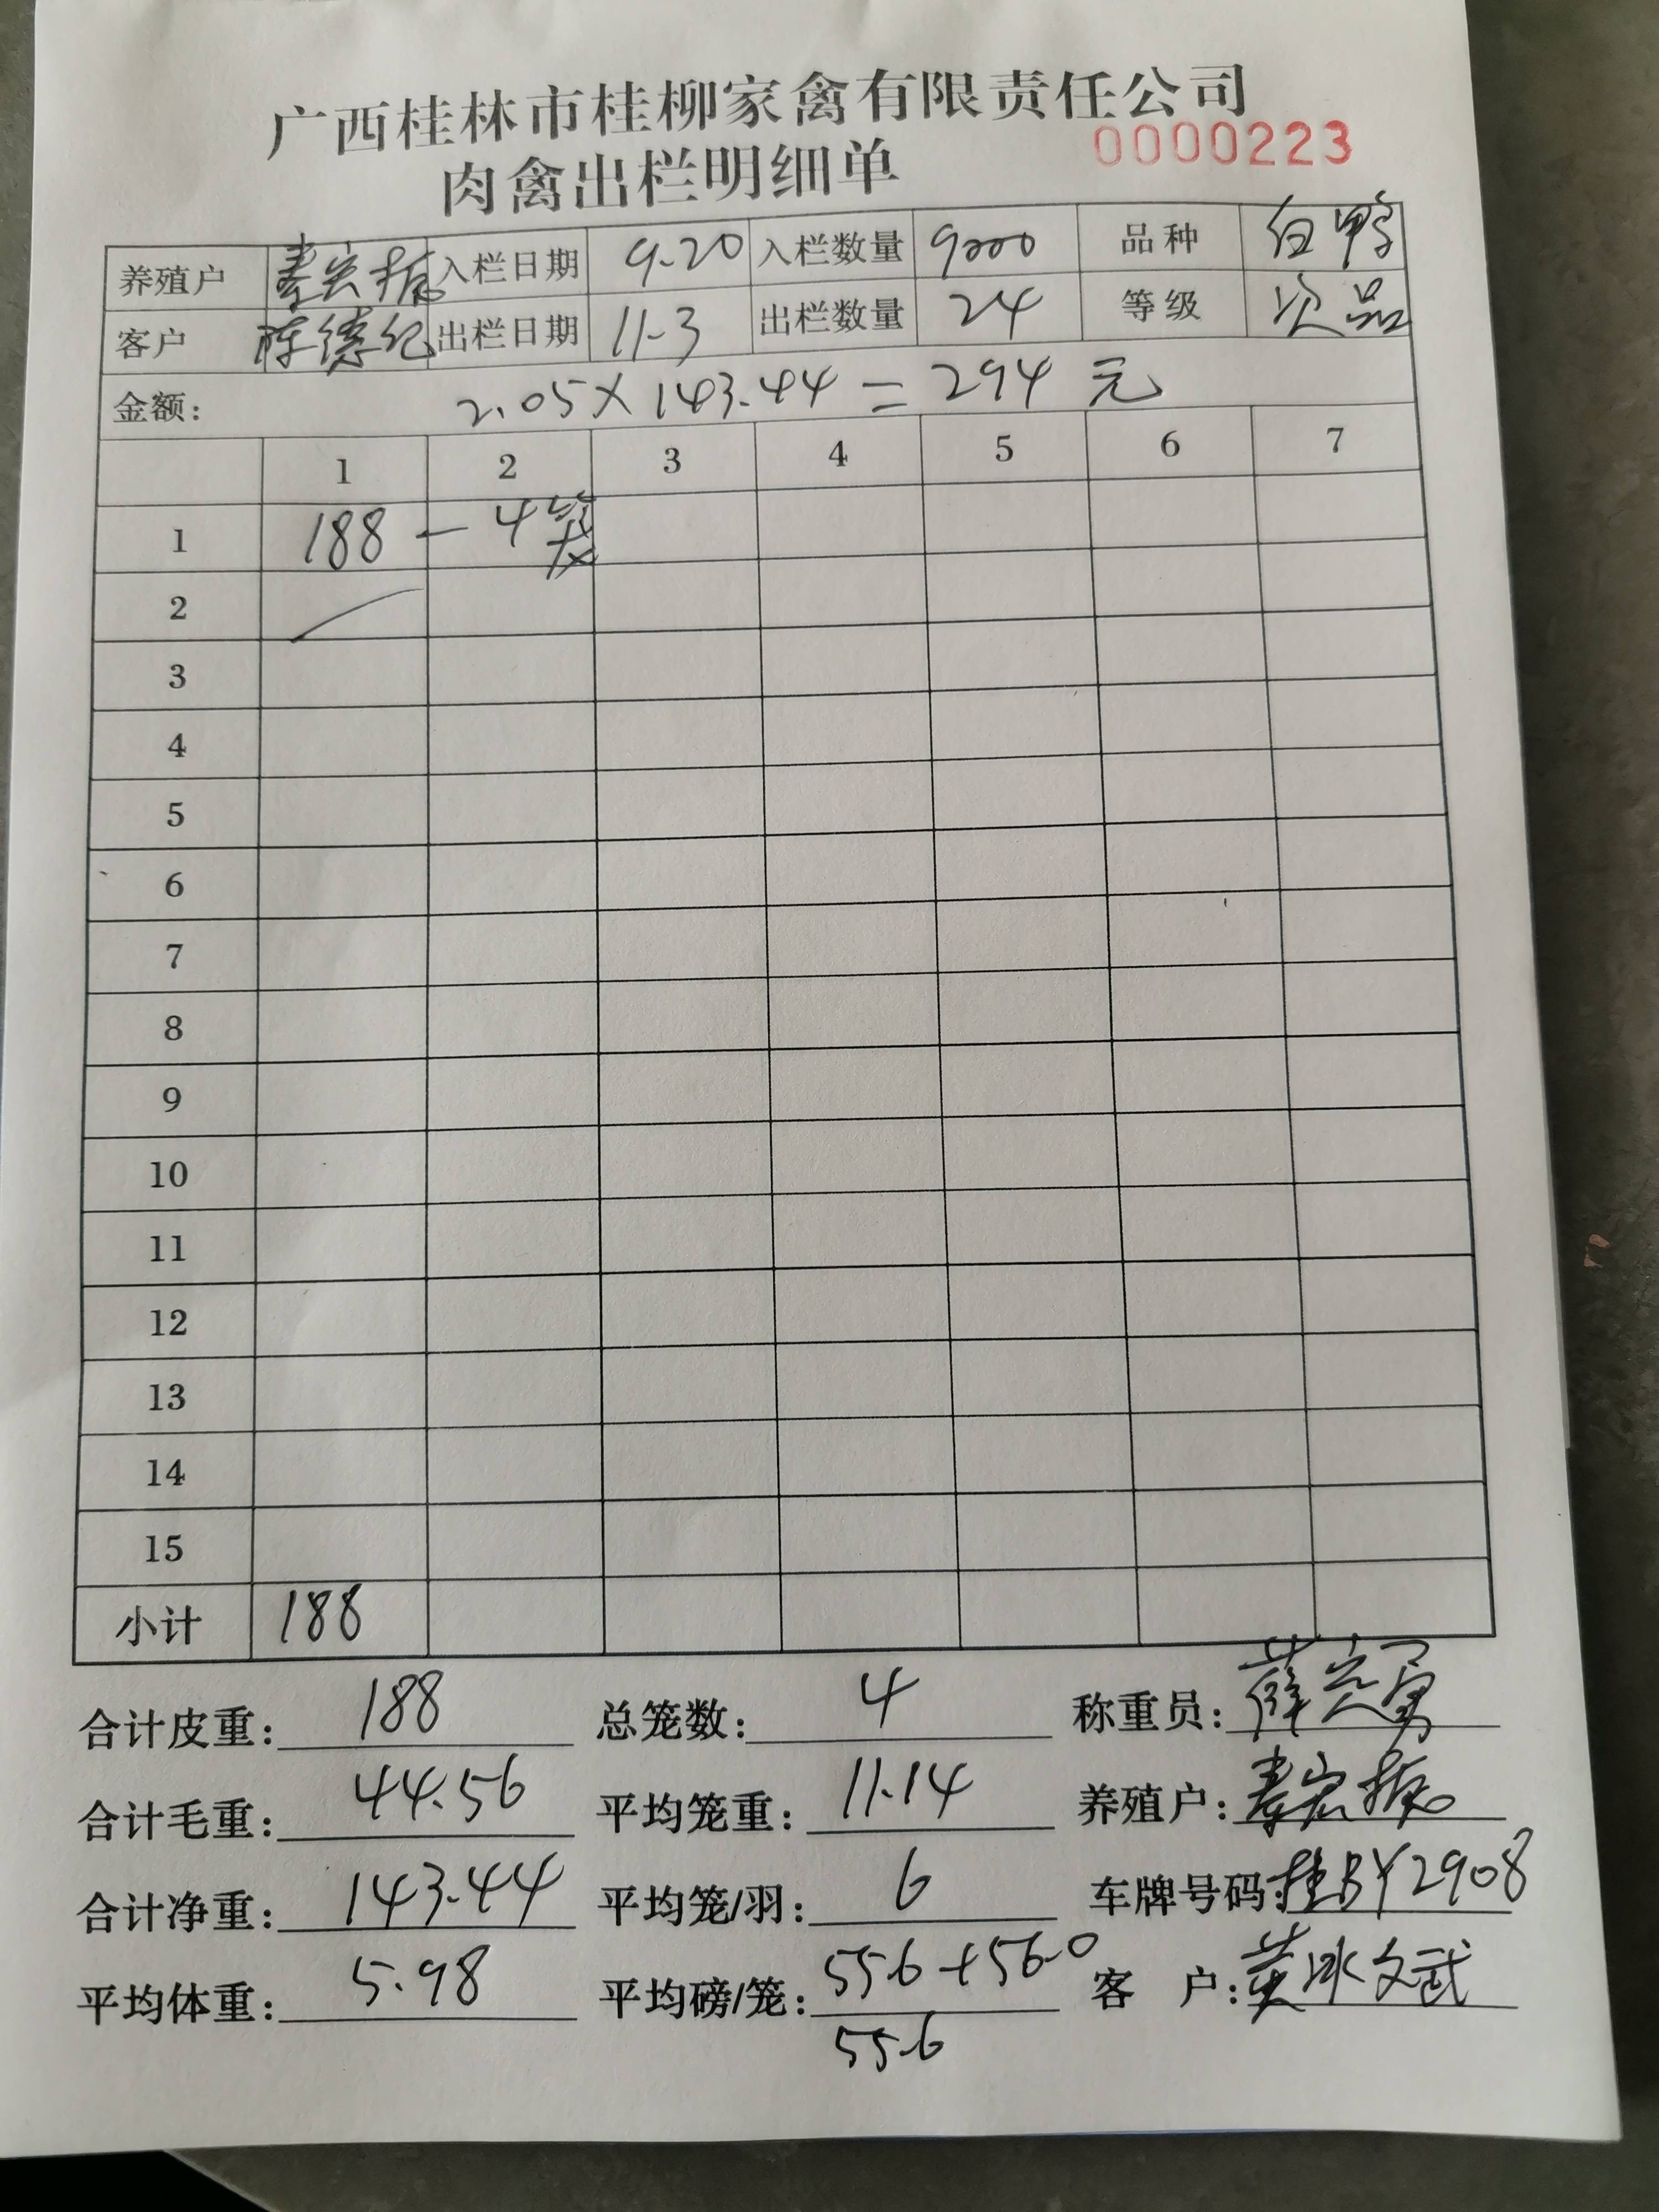 广西桂林市桂柳家禽有限责任公司
肉禽出栏明细单 0000223
养殖户 秦宏振 入栏日期 9.20 入栏数量 9000 品种 白鸭
客户 陈德纪 出栏日期 11-3 出栏数量 24 等级 次品
金额: 2.05×143.44=294元
1 2 3 4 5 6 7
1 188 - 4笼
2
3
4
5
6
7
8
9
10
11
12
13
14
15
小计 188
合计皮重: 188 总笼数: 4 称重员:
合计毛重: 44.56 平均笼重: 11.14 养殖户: 秦宏振
合计净重: 143.44 平均笼/羽: 6 车牌号码: 桂BY2908
平均体重: 5.98 平均磅/笼: 55.6+56.0 客 户:
55.6